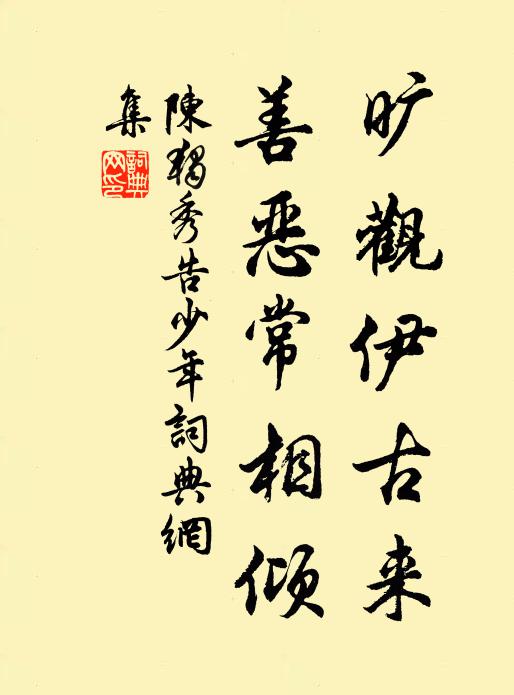 旷觀伊古来
善惡常相倾
陳獨秀告少年詞典網
集
詞典网印